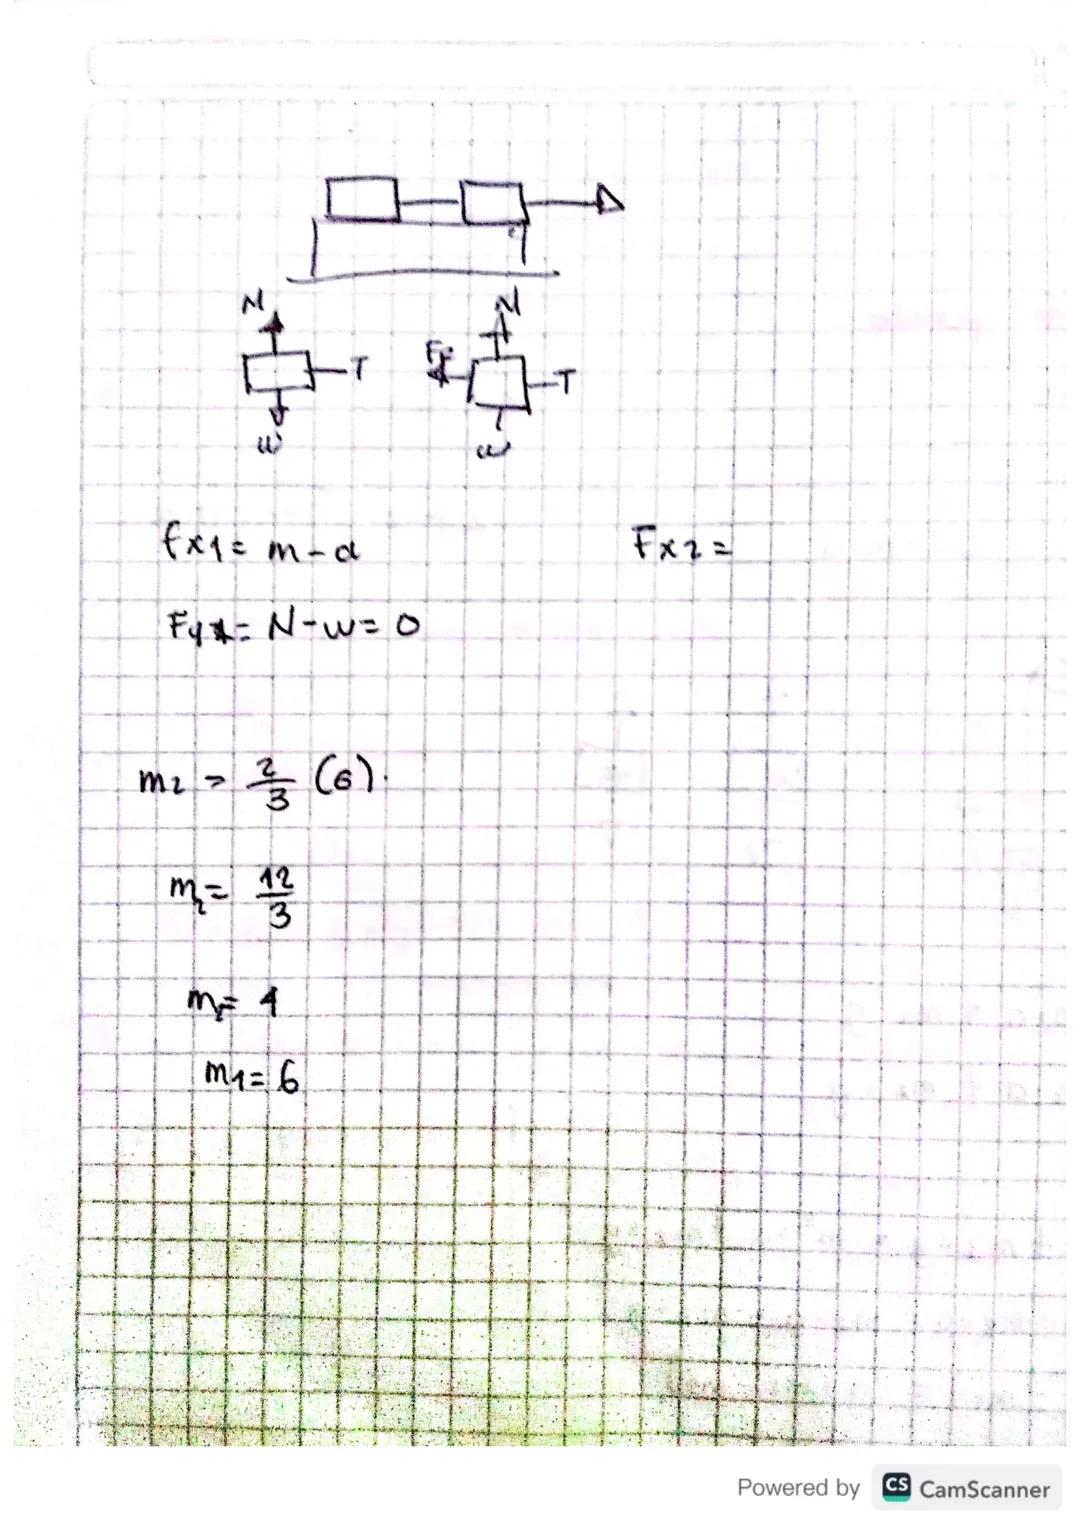 N
N
T
Fr
T
w
w
fx1= m-a
Fx2=
Fy1= N-w= 0
m2 = 2/3 (6).
m2= 12/3
m2= 4
m1= 6
Powered by CS CamScanner